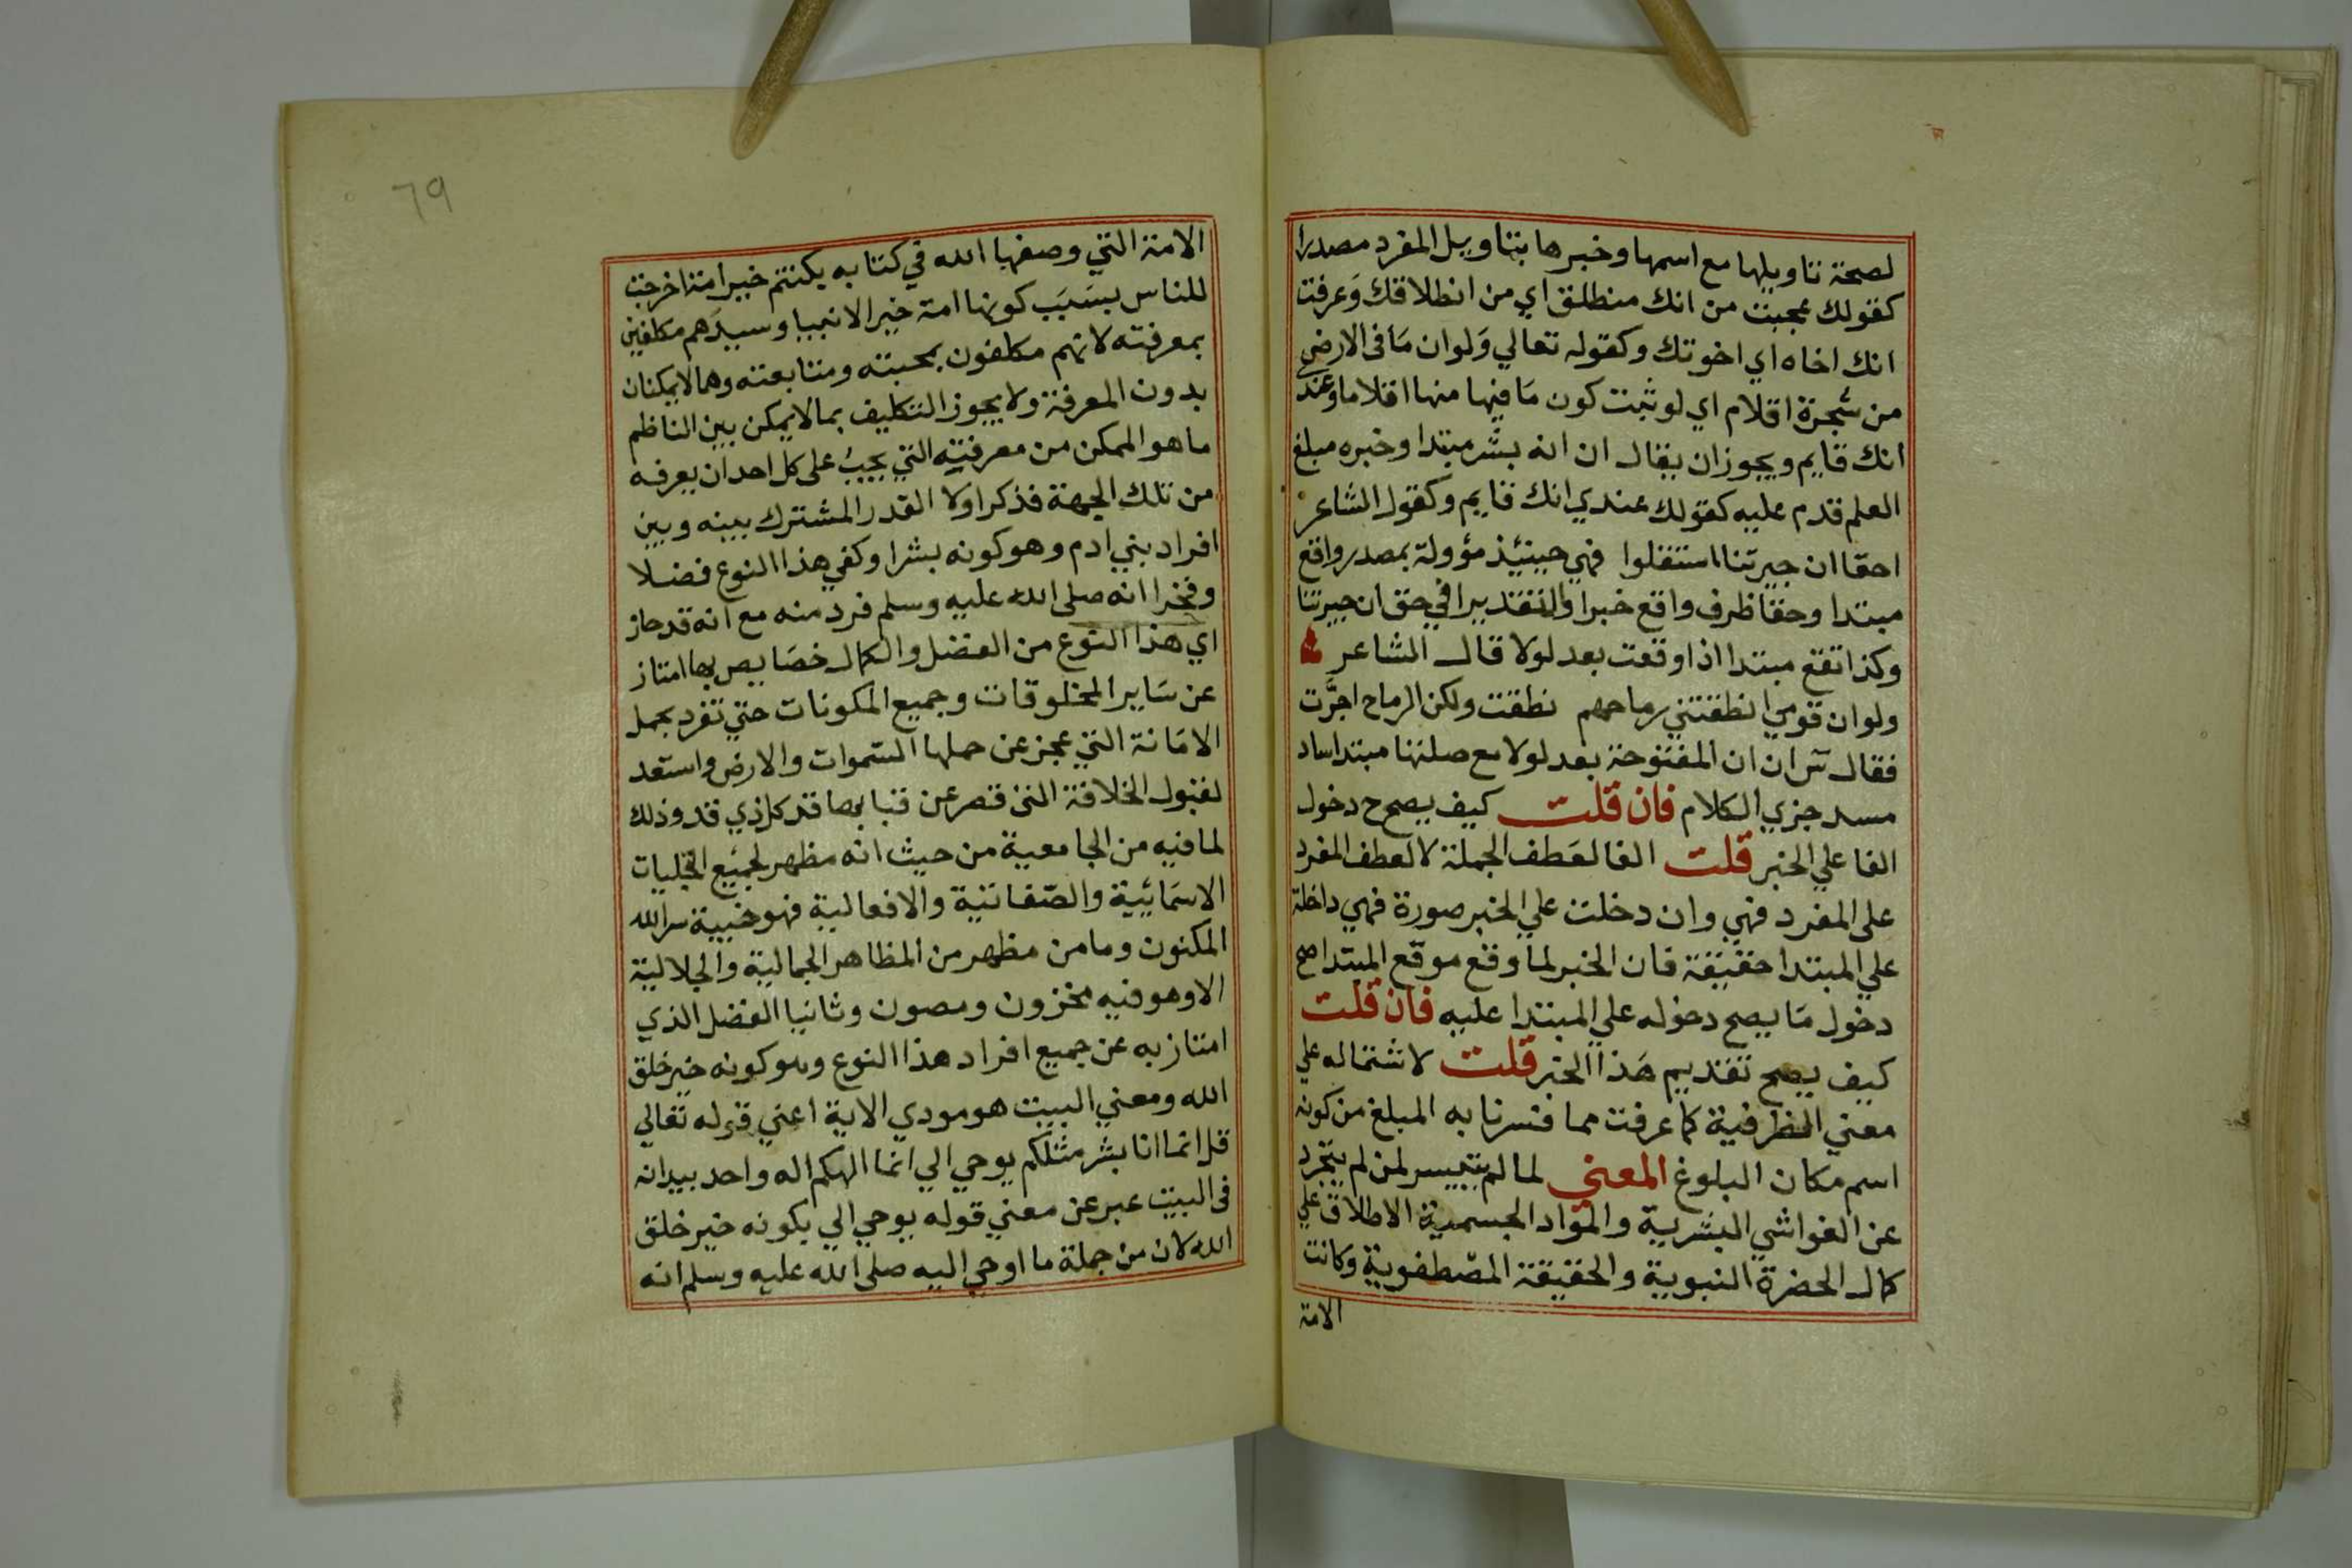 لصحة تاويلها مع اسمها وخبرها بتاويل المفرد مصدرا
كقولك عجبت من انك منطلق اي من انطلاقك وعرفت
انك اخاه اي اخوتك وكقوله تعالي ولوان مافى الارض
من شجرة اقلام اي لوثبت كون مافيها منها اقلاما وعند
انك قايم ويجوز ان يقال ان انه بشر مبتدا وخبره مبلغ
العلم قدم عليه كقولك عندي انك قايم وكقول الشاعر
احقا ان جيرتنا استقلوا فهي حينئذ مؤولة بمصدر واقع
مبتدا وحقا ظرف واقع خبرا والتقدير افي حق ان جيرتنا
وكذا تقع مبتدا اذا وقعت بعد لولا قال الشاعر
ولوان قومي انطقتني رماحهم نطقت ولكن الرماح اجرت
فقال س ان ان المفتوحة بعد لولا مع صلتها مبتدا ساد
مسد جزي الكلام فان قلت كيف يصح دخول
الفا علي الخبر قلت الفا لعطف الجملة لا لعطف المفرد
على المفرد فهي وان دخلت علي الخبر صورة فهي داخلة
علي المبتدا حقيقة فان الخبر لما وقع موقع المبتدا صح
دخول ما يصح دخوله علي المبتدا عليه فان قلت
كيف يصح تقديم هذا الخبر قلت لاشتماله علي
معني الظرفية كما عرفت مما فسرنا به المبلغ من كونه
اسم مكان البلوغ المعني لما لم يتيسر لمن لم يتجرد
عن الغواشي البشرية والمواد الجسمية الاطلاق علي
كمال الحضرة النبوية والحقيقة المصطفوية وكانت
الامة
٦٩
الامة التي وصفها الله في كتابه بكنتم خير امة اخرجت
للناس بسبب كونها امة خير الانبيا وسيدهم مكلفين
بمعرفته لانهم مكلفون بمحبته ومتابعته وهما لايمكنان
بدون المعرفة ولا يجوز التكليف بما لايمكن بين الناظم
ما هو الممكن من معرفته التي يجب على كل احد ان يعرفه
من تلك الجهة فذكر اولا القدر المشترك بينه وبين
افراد بني ادم وهو كونه بشرا وكفي هذا النوع فضلا
وفخرا انه صلى الله عليه وسلم فرد منه مع انه قد حاز
اي هذا النوع من الفضل والكمال خصايص بها امتاز
عن ساير المخلوقات وجميع المكونات حتي تفرد بحمل
الامانة التي عجز عن حملها السموات والارض واستعد
لقبول الخلافة التي قصر عن قبابها قد كل ذي قد وذلك
لما فيه من الجامعية من حيث انه مظهر لجميع التجليات
الاسمائية والصفاتية والافعالية فهو خبية سر الله
المكنون وما من مظهر من المظاهر الجمالية والجلالية
الا وهو فيه مخزون ومصون وثانيا الفضل الذي
امتاز به عن جميع افراد هذا النوع وهو كونه خير خلق
الله ومعني البيت هو مودي الاية اعني قوله تعالي
قل انما انا بشر مثلكم يوحي الي انما الهكم اله واحد بيد انه
فى البيت عبر عن معني قوله يوحي الي بكونه خير خلق
الله لان من جملة ما اوحي اليه صلى الله عليه وسلم انه